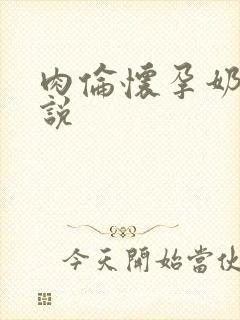 肉倫懷孕奶
說
今天開始當伙